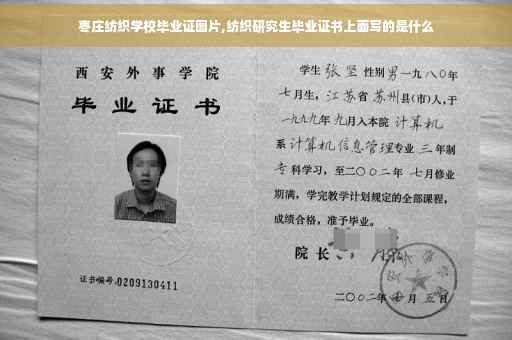 枣庄纺织学校毕业证图片,纺织研究生毕业证书上面写的是什么
西安外事学院
毕业证书
证书编号:0209130411
学生 张坚 性别 男 一九八〇年
七月生, 江苏省 苏州县(市)人,于
一九九九年 九月入本院 计算机
系 计算机信息管理专业 三 年制
专科学习, 至二〇〇二年 七月修业
期满, 学完教学计划规定的全部课程,
成绩合格, 准予毕业。
院长
二〇〇二年 月五日